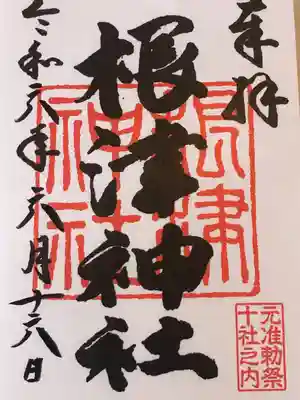 奉拝
根津神社
根津
神社
元准勅祭
十社之内
令和六年六月十六日